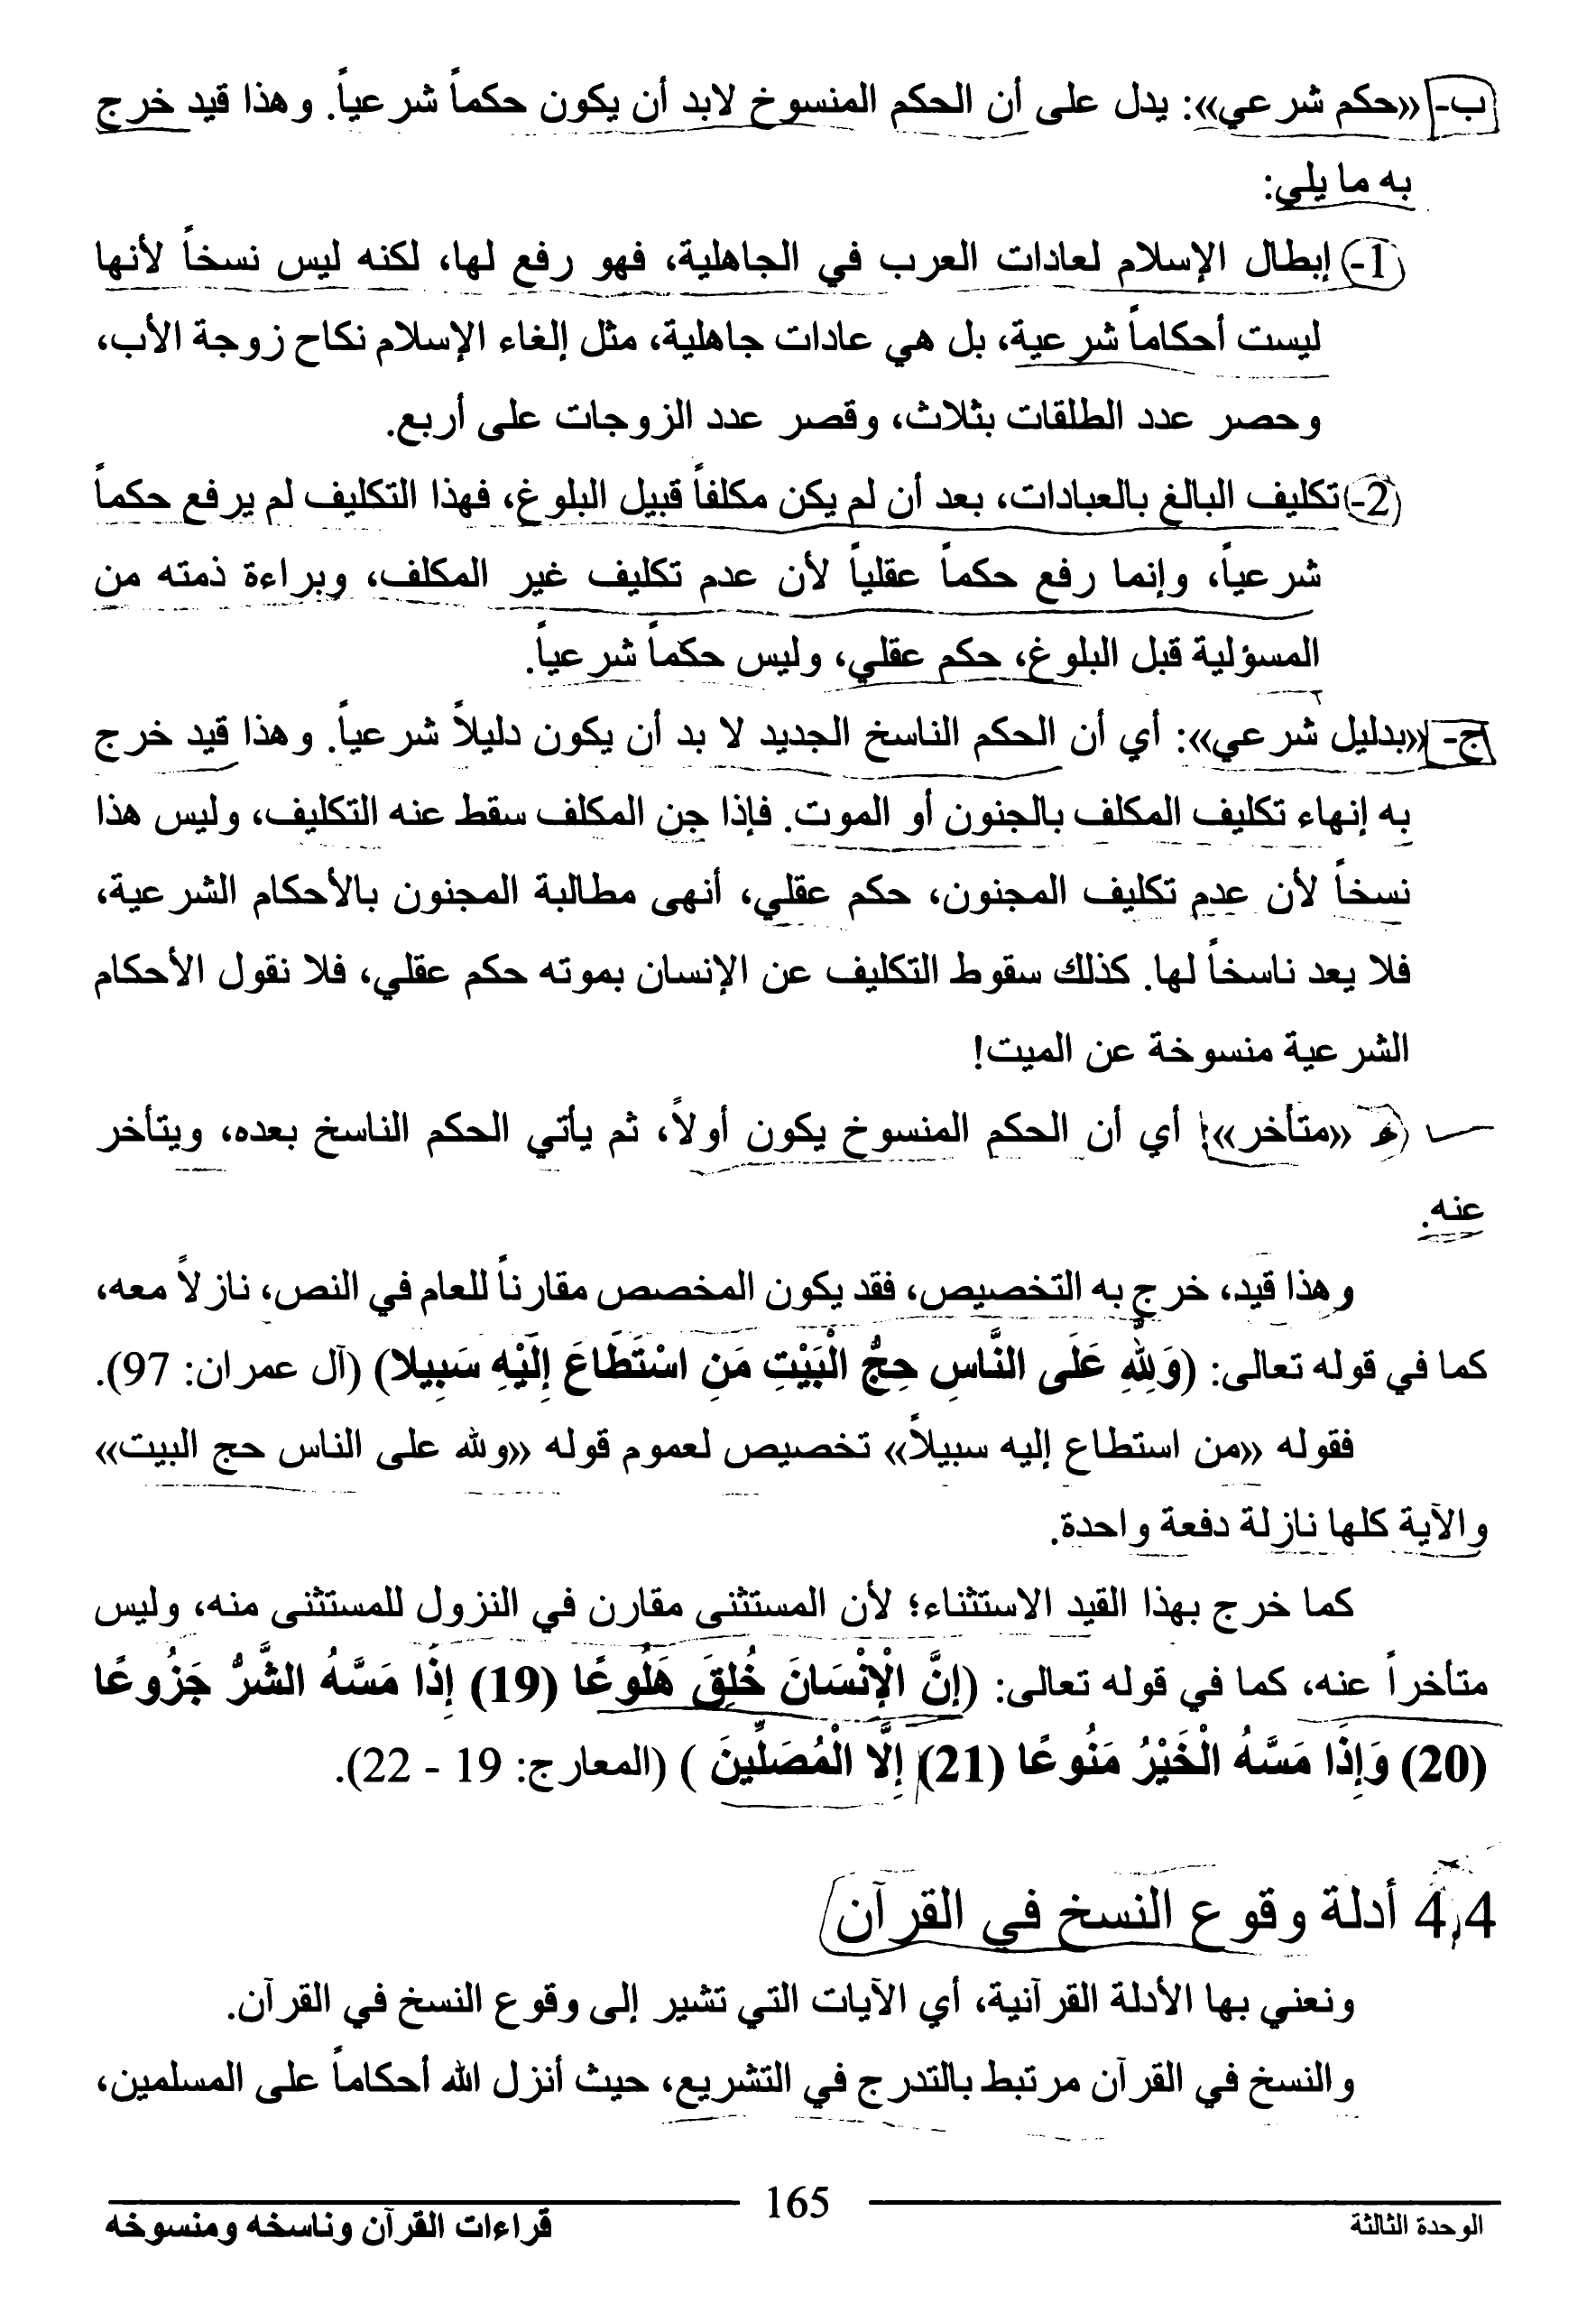 ب- «حكم شرعي»: يدل على أن الحكم المنسوخ لابد أن يكون حكماً شرعياً. وهذا قيد خرج
به ما يلي:
1- إبطال الإسلام لعادات العرب في الجاهلية، فهو رفع لها، لكنه ليس نسخاً لأنها
ليست أحكاماً شرعية، بل هي عادات جاهلية، مثل إلغاء الإسلام نكاح زوجة الأب،
وحصر عدد الطلقات بثلاث، وقصر عدد الزوجات على أربع.
2- تكليف البالغ بالعبادات، بعد أن لم يكن مكلفاً قبيل البلوغ، فهذا التكليف لم يرفع حكماً
شرعياً، وإنما رفع حكماً عقلياً لأن عدم تكليف غير المكلف، وبراءة ذمته من
المسؤلية قبل البلوغ، حكم عقلي، وليس حكماً شرعياً.
ج- «بدليل شرعي»: أي أن الحكم الناسخ الجديد لا بد أن يكون دليلاً شرعياً. وهذا قيد خرج
به إنهاء تكليف المكلف بالجنون أو الموت. فإذا جن المكلف سقط عنه التكليف، وليس هذا
نسخاً لأن عدم تكليف المجنون، حكم عقلي، أنهى مطالبة المجنون بالأحكام الشرعية،
فلا يعد ناسخاً لها. كذلك سقوط التكليف عن الإنسان بموته حكم عقلي، فلا نقول الأحكام
الشرعية منسوخة عن الميت!
«متأخر»: أي أن الحكم المنسوخ يكون أولاً، ثم يأتي الحكم الناسخ بعده، ويتأخر
عنه.
وهذا قيد، خرج به التخصيص، فقد يكون المخصص مقارناً للعام في النص، نازلاً معه،
كما في قوله تعالى: (وَلِلَّهِ عَلَى النَّاسِ حِجُّ الْبَيْتِ مَنِ اسْتَطَاعَ إِلَيْهِ سَبِيلا) (آل عمران: 97).
فقوله «من استطاع إليه سبيلاً» تخصيص لعموم قوله «ولله على الناس حج البيت»
والآية كلها نازلة دفعة واحدة.
كما خرج بهذا القيد الاستثناء؛ لأن المستثنى مقارن في النزول للمستثنى منه، وليس
متأخراً عنه، كما في قوله تعالى: (إِنَّ الْإِنْسَانَ خُلِقَ هَلُوعًا (19) إِذَا مَسَّهُ الشَّرُّ جَزُوعًا
(20) وَإِذَا مَسَّهُ الْخَيْرُ مَنُوعًا (21) إِلَّا الْمُصَلِّينَ ) (المعارج: 19 - 22).
4,4 أدلة وقوع النسخ في القرآن
ونعني بها الأدلة القرآنية، أي الآيات التي تشير إلى وقوع النسخ في القرآن.
والنسخ في القرآن مرتبط بالتدرج في التشريع، حيث أنزل الله أحكاماً على المسلمين،
الوحدة الثالثة 165 قراءات القرآن وناسخه ومنسوخه